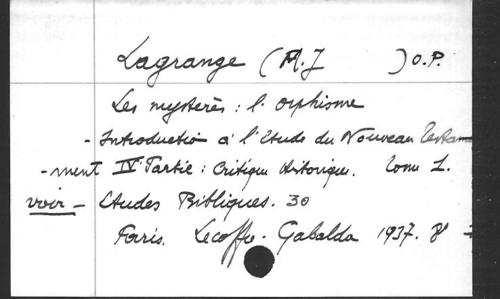 Lagrange (M. J ) O.P.
Les mystères : l'orphisme
- Introduction à l'Etude du Nouveau Testa
- ment IV Partie : Critique Historique. Tome 1.
voir - Etudes Bibliques. 30
Paris. Lecoffre - Gabalda 1937. 8°